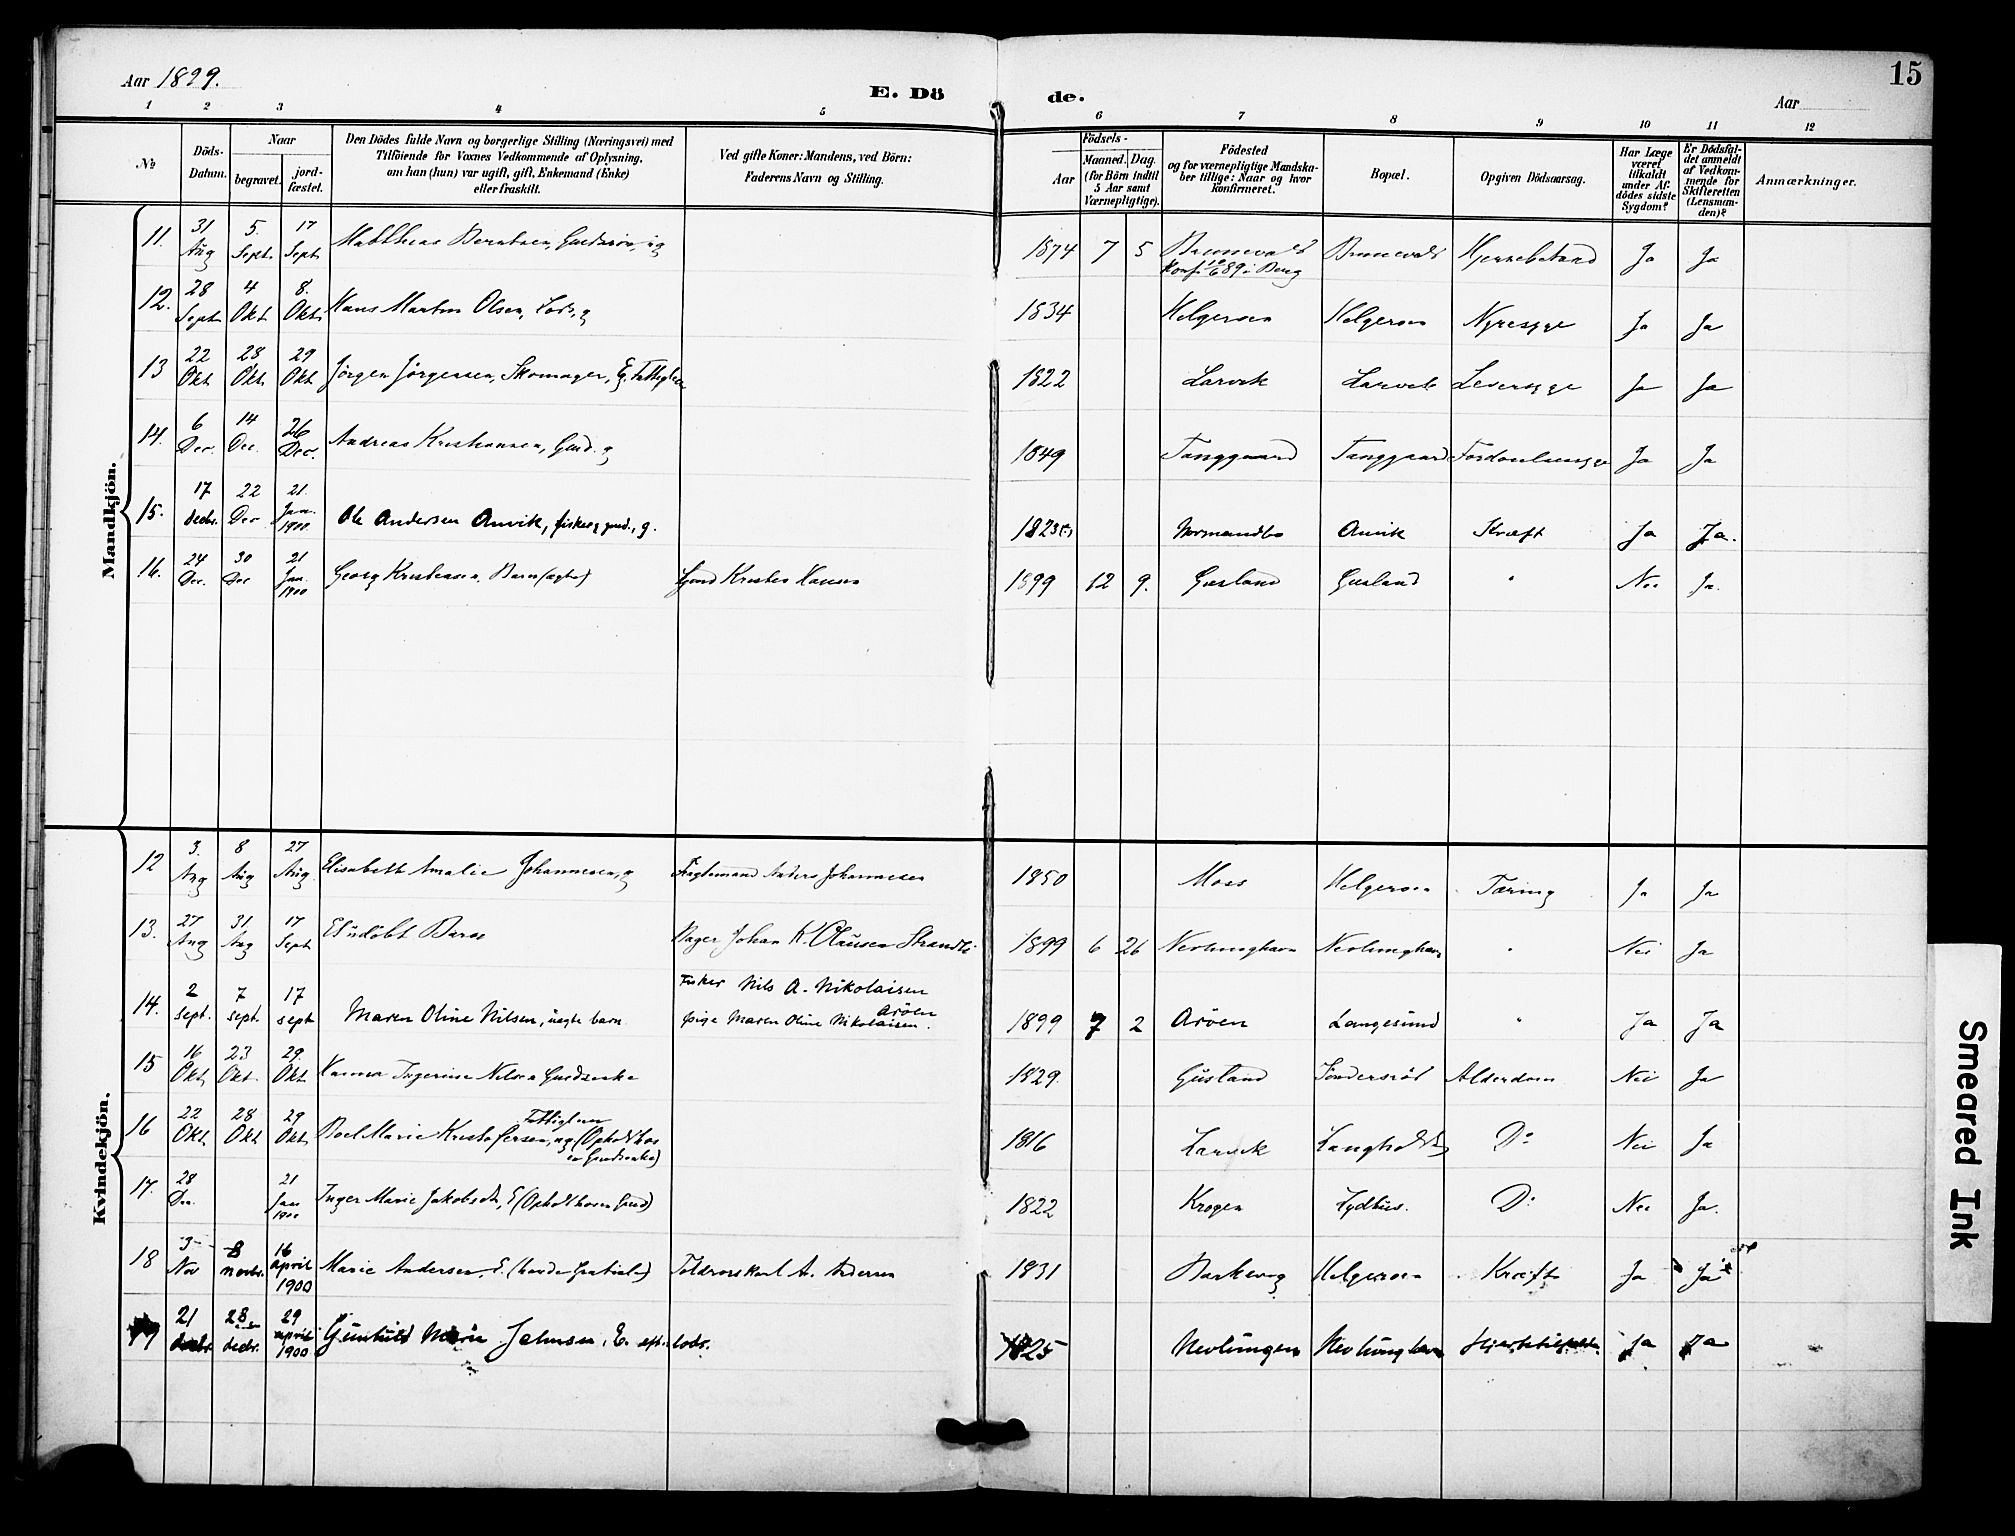 Aar 1899.
E. Döde.
Aar
15
1 2 3 4 5 6 7 8 9 10 11 12
No
Döds-Datum.
Naar
begravet.
jord-fæstet.
Den Dödes fulde Navn og borgerlige Stilling (Næringsvei) med
Tilföiende for Voxnes Vedkommende af Oplysning,
om han (hun) var ugift, gift, Enkemand (Enke)
eller fraskilt.
Ved gifte Koner: Mandens, ved Börn:
Faderens Navn og Stilling.
Födsels-
Aar
Maaned. Dag.
(for Börn indtil
5 Aar samt
Værnepligtige).
Födested
og for værnepligtige Mandska-
ber tillige: Naar og hvor
konfirmeret.
Bopæl.
Opgiven Dödsaarsag.
Har Læge
været
tilkaldt
under Af-
dödes sidste
Sygdom?
Er Dödsfal-
det anmeldt
af Vedkom-
mende for
Skifteretten
(Lensman-
den)?
Anmærkninger.
Mandkjön.
11. 31 Aug 5. Sept. 17 Sept Matthias Berntsen, Gaardssön, ug 1874 7 5 Konf. 89 i Berg Ja Ja
12. 28 Sept 4 Okt 8. Okt Hans Martin Olsen, Lods, g 1834 Helgeroen Helgeroen Nyresyge Ja Ja
13 22 Okt 28 Okt 29 Okt Jörgen Jörgensen, Skomager, E, 1822 Larvik Larvik Leversyge Ja Ja
14. 6 Dec. 14 Dec. 26 Dec. Andreas Kristiansen, Gmd. g 1849 Tanggaard Tanggaard Ja Ja
15. 17 decbr. 22 Dec 21. Jan. 1900 Ole Andersen Anvik, fisker, gmd., g. 1823(?) Anvik Kræft Ja Ja.
16. 24 Dec. 30 Dec 21 Jan. 1900 Georg Kristensen, Barn (ægte) Gmd Kristen Hansen 1899 12 9. Gusland Gusland " Nei Ja.
Kvindekjön.
12 3. Aug 8 Aug 27 Aug. Elisabeth Amalie Johannesen, g Anders Johannesen 1850 Moss Helgeroen Tæring Ja Ja
13. 27 Aug 31 Aug 17 Sept Et udöbt Barn Bager Johan K. Clausen 1899 6 26 Nevlunghavn Nevlunghavn " Nei Ja
14. 2 sept. 7 sept. 17 sept Maren Oline Nilsen, uegte barn Fisker Nils A. Nikolaisen
Aröen
pige Maren Oline Nikolaisen. 1899 7 2 Aröen Langesund " Ja Ja
15 16 Okt 23 Okt. 29. Okt Hanna Ingerine Nilsen Gmdsenke 1829. Gusland Söndersröd Alderdom Nei Ja
16 22 Okt. 28 Okt 29 Okt Boel Marie Kristofersen, ug (Ophold hos
en Gmdsenke) 1816 Larvik Langholdt Do Nei Ja
17. 28 Dec. 21 Jan 1900 Inger Marie Jakobsdt., E (Ophold hos en Gmd) 1822 Krogen Lydhus. Do Nei Ja.
18 3 Nov 8 novbr. 16 april 1900 Marie Andersen, E. Toldrorskarl A. Andersen 1831 Barkevig Helgeroen Kræft Ja Ja
19 21 decbr. 28 decbr. 29 april 1900 Gunhild Marie Johnsen, E. eft. lods. 1825 Nevlungen Nevlunghavn Ja Ja
Smeared Ink